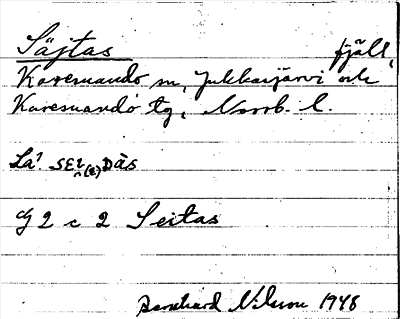 Säjtas fjäll,
Karesuando sn, Jukkasjärvi och
Karesuando tg, Norrb. l.
La!
G 2 c 2 Seitas
Bernhard Nilsson 1948